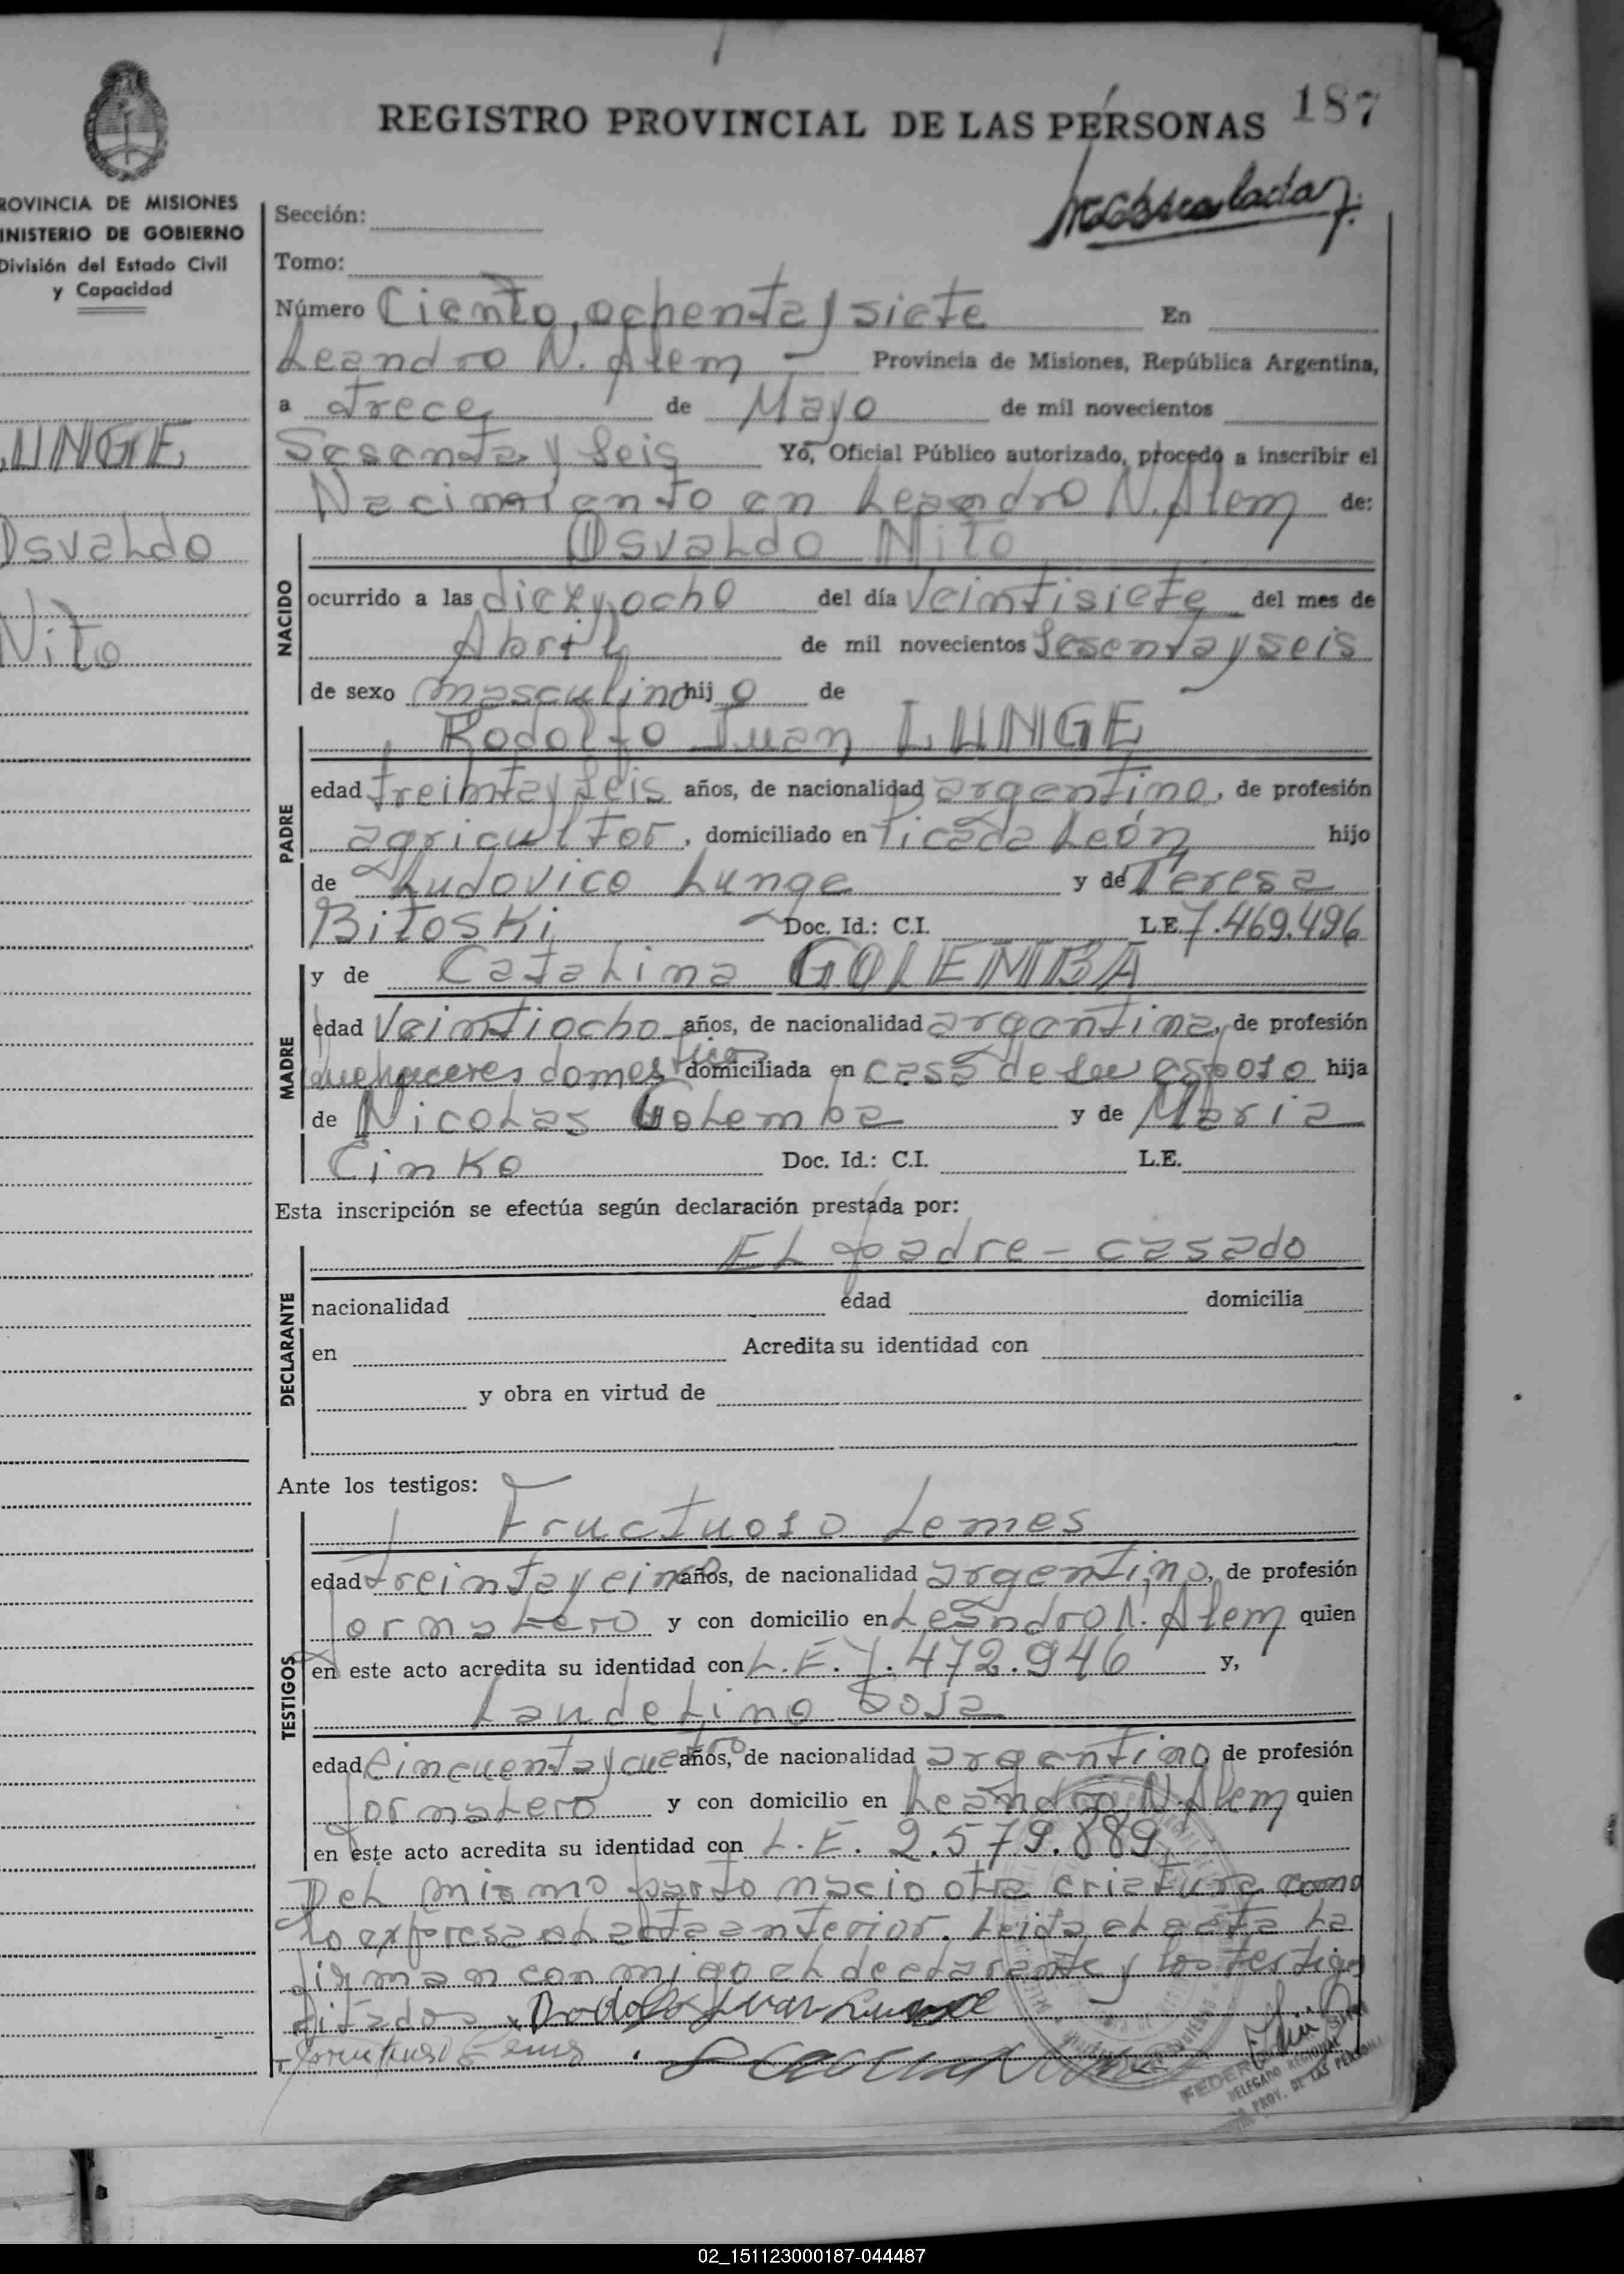 187
REGISTRO PROVINCIAL DE LAS PERSONAS
ROVINCIA DE MISIONES
INISTERIO DE GOBIERNO
División del Estado Civil
y Capacidad
LUNGE
Osvaldo
Nito
Sección:
Tomo:
Número Ciento, ochenta y siete En
Leandro N. Alem Provincia de Misiones, República Argentina,
a trece de Mayo de mil novecientos
Sesenta y Seis Yo, Oficial Público autorizado, procedo a inscribir el
Nacimiento en Leandro N. Alem de:
NACIDO
Osvaldo Nito
ocurrido a las diez y ocho del día Veintisiete del mes de
Abril de mil novecientos Sesenta y seis
de sexo masculino hijo de
PADRE
Rodolfo Juan LUNGE
edad treinta y seis años, de nacionalidad argentino, de profesión
agricultor, domiciliado en Picada León hijo
de Ludovico Lunge y de Teresa
Bitoski Doc. Id.: C.I. L.E. 7.469.496
MADRE
y de Catalina GOLEMBA
edad Veintiocho años, de nacionalidad argentina, de profesión
quehaceres domesticos domiciliada en casa de su esposo hija
de Nicolas Golemba y de Maria
Cinko Doc. Id.: C.I. L.E.
Esta inscripción se efectúa según declaración prestada por:
DECLARANTE
El padre - casado
nacionalidad edad domicilia
en Acredita su identidad con
y obra en virtud de
Ante los testigos:
TESTIGOS
Fructuoso Lemes
edad treinta y cinco años, de nacionalidad argentino, de profesión
jornalero y con domicilio en Leandro N. Alem quien
en este acto acredita su identidad con L.E. 7.472.946 y,
Laudelino Sosa
edad Cincuenta y cuatro años, de nacionalidad argentino, de profesión
jornalero y con domicilio en Leandro N. Alem quien
en este acto acredita su identidad con L.E. 2.579.889
Del mismo parto nacio otra criatura como
lo expresa el acta anterior. Leida el acta la
firman conmigo el declarante y los testigos
citados Rodolfo Juan Lunge
DELEGADO REGIONAL
PROV. DE LAS PERSONAS
02_151123000187-044487